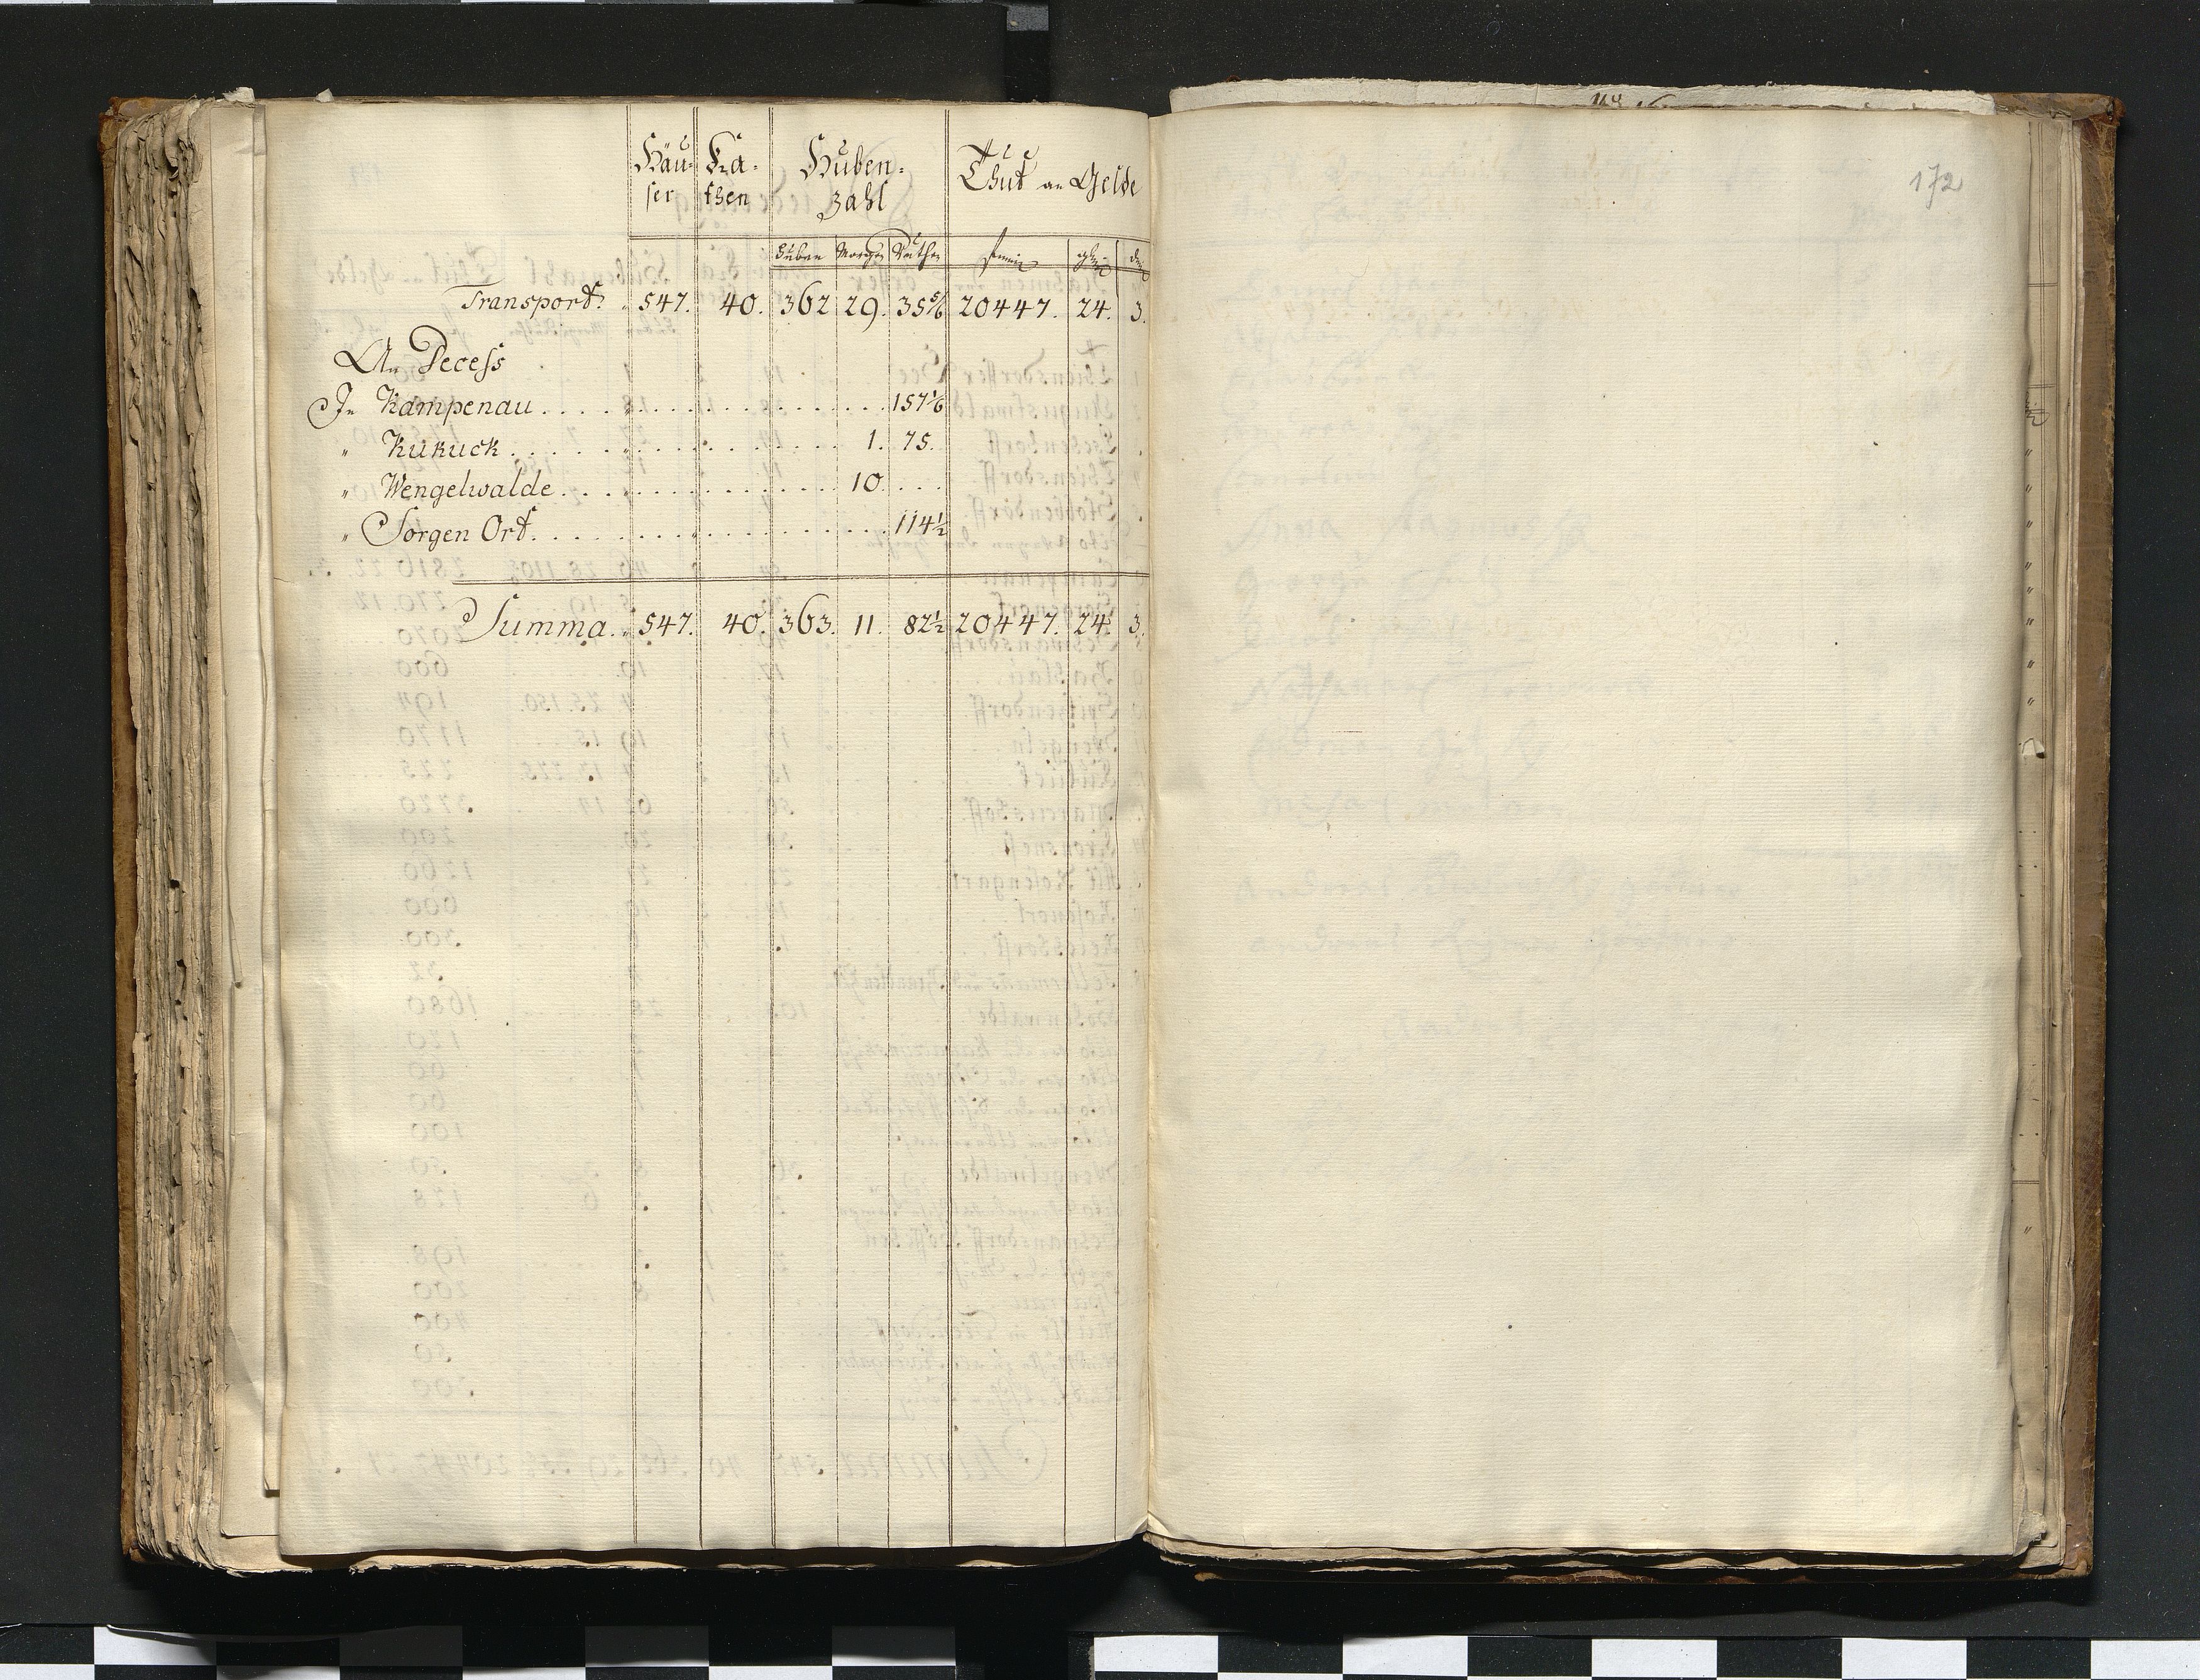 Häu- Ka- Huben- Thut an Gelde
ser then Zahl
Huben Morgen Ruthen
Transport. 547. 40. 362 29. 35 5/6 20447. 24. 3.
An Decess
In Kampenau . . . . 157 1/6
" Kukuck . . . . 1. 75.
" Wengelwalde . . . . 10. . . .
" Sorgen Ort . . . . 114 1/2
Summa . . 547. 40. 363. 11. 82 1/2 20447. 24. 3.
172